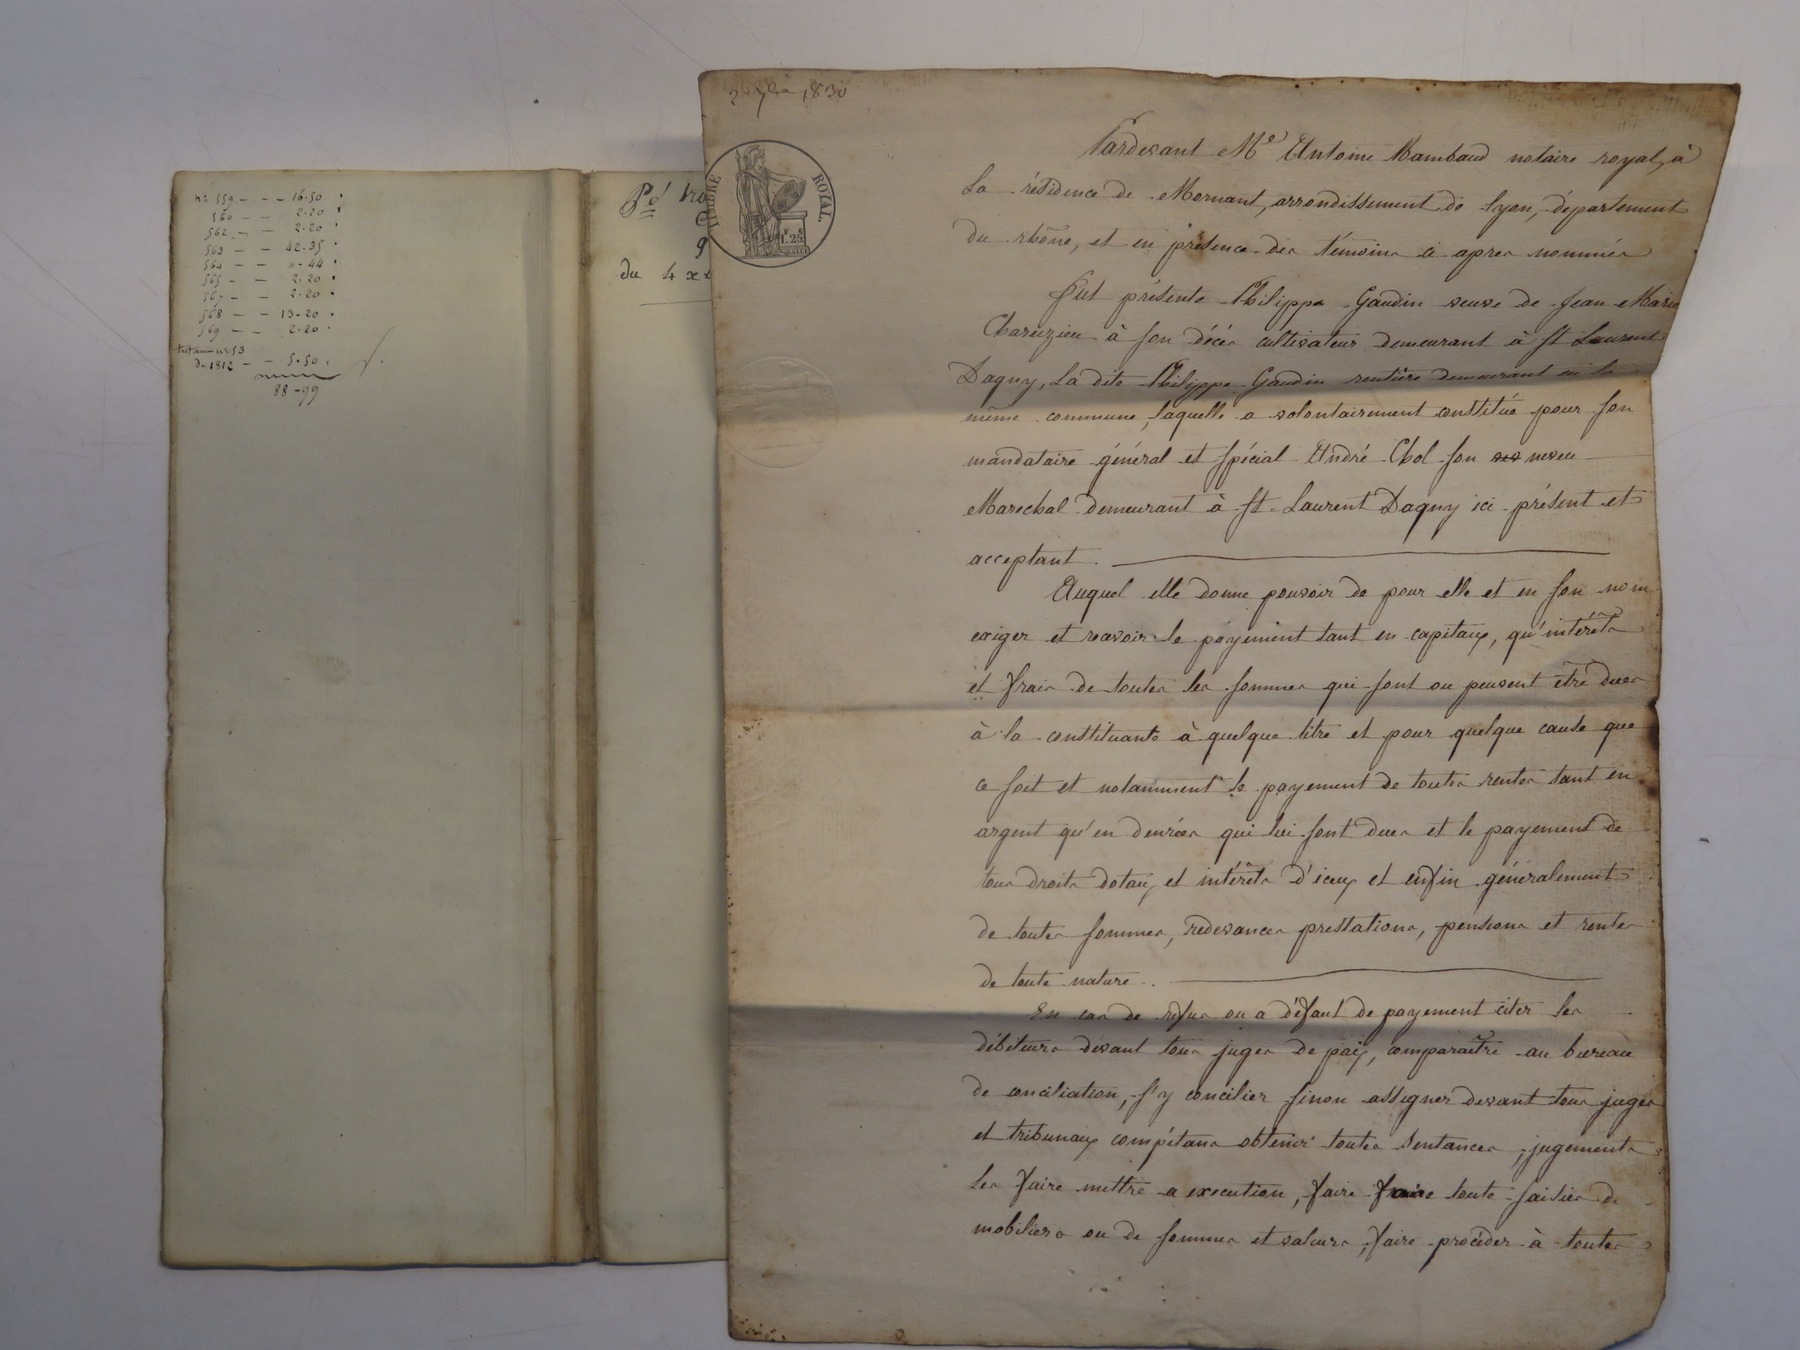 n.os 559 - - - 16.50
560 - - 2.20
562 - - 2.20
563 - - 42.35
564 - - 44
565 - - 2.20
567 - - 2.20
568 - - 13-20
569 - - 2.20
n.o 53
de 1812 - - 5.50
88-99
du 4
1830
TIMBRE ROYAL
1.25
Pardevant Me Antoine Mambaud notaire royal, à
La résidence de Mornant, arrondissement de Lyon, département
du rhône, et en présence des témoins ci apres nommés
fut présente Philippe Gaudin veuve de Jean Marie
Charézieu à son décés cultivateur demeurant à St Laurent
Dagny, La dite Philippe Gaudin rentière demeurant en la
même commune, laquelle a volontairement constitué pour son
mandataire général et spécial André Chol son neveu
Marechal demeurant à St Laurent Dagny ici présent et
acceptant.
Auquel elle donne pouvoir de pour elle et en son nom
exiger et recevoir le payement tant en capitaux, qu'intérêts
et frais de toutes les sommes qui sont ou peuvent être dues
à la constituante à quelque titre et pour quelque cause que
ce soit et notamment le payement de toutes rentes tant en
argent qu'en denrées qui lui sont dues et le payement de
tous droits dotaux et intérêts d'iceux et enfin généralement
de toutes sommes, redevances prestations, pensions et rentes
de toute nature.
En cas de refus ou a défaut de payement citer les
débiteurs devant tous juges de paix, comparaître au bureau
de conciliation, s'y concilier sinon assigner devant tous juges
et tribunaux compétans obtenir toutes sentances, jugements
les faire mettre a execution, faire faire toute saisies de
mobiliers ou de sommes et valeurs, faire procéder à toutes